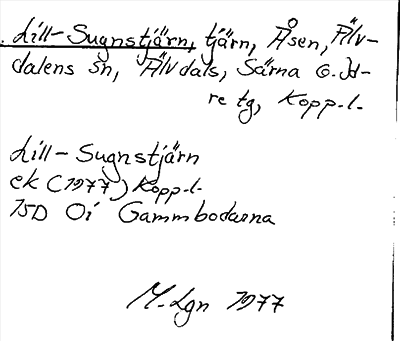 Lill-Sugnstjärn, tjärn, Åsen, Älv-
dalens sn, Älvdals, Särna o. Id-
re tg, Kopp.l.
Lill-Sugnstjärn
ek (1977) Kopp.l.
15D Oi Gammbodarna
M.Lgn 1977